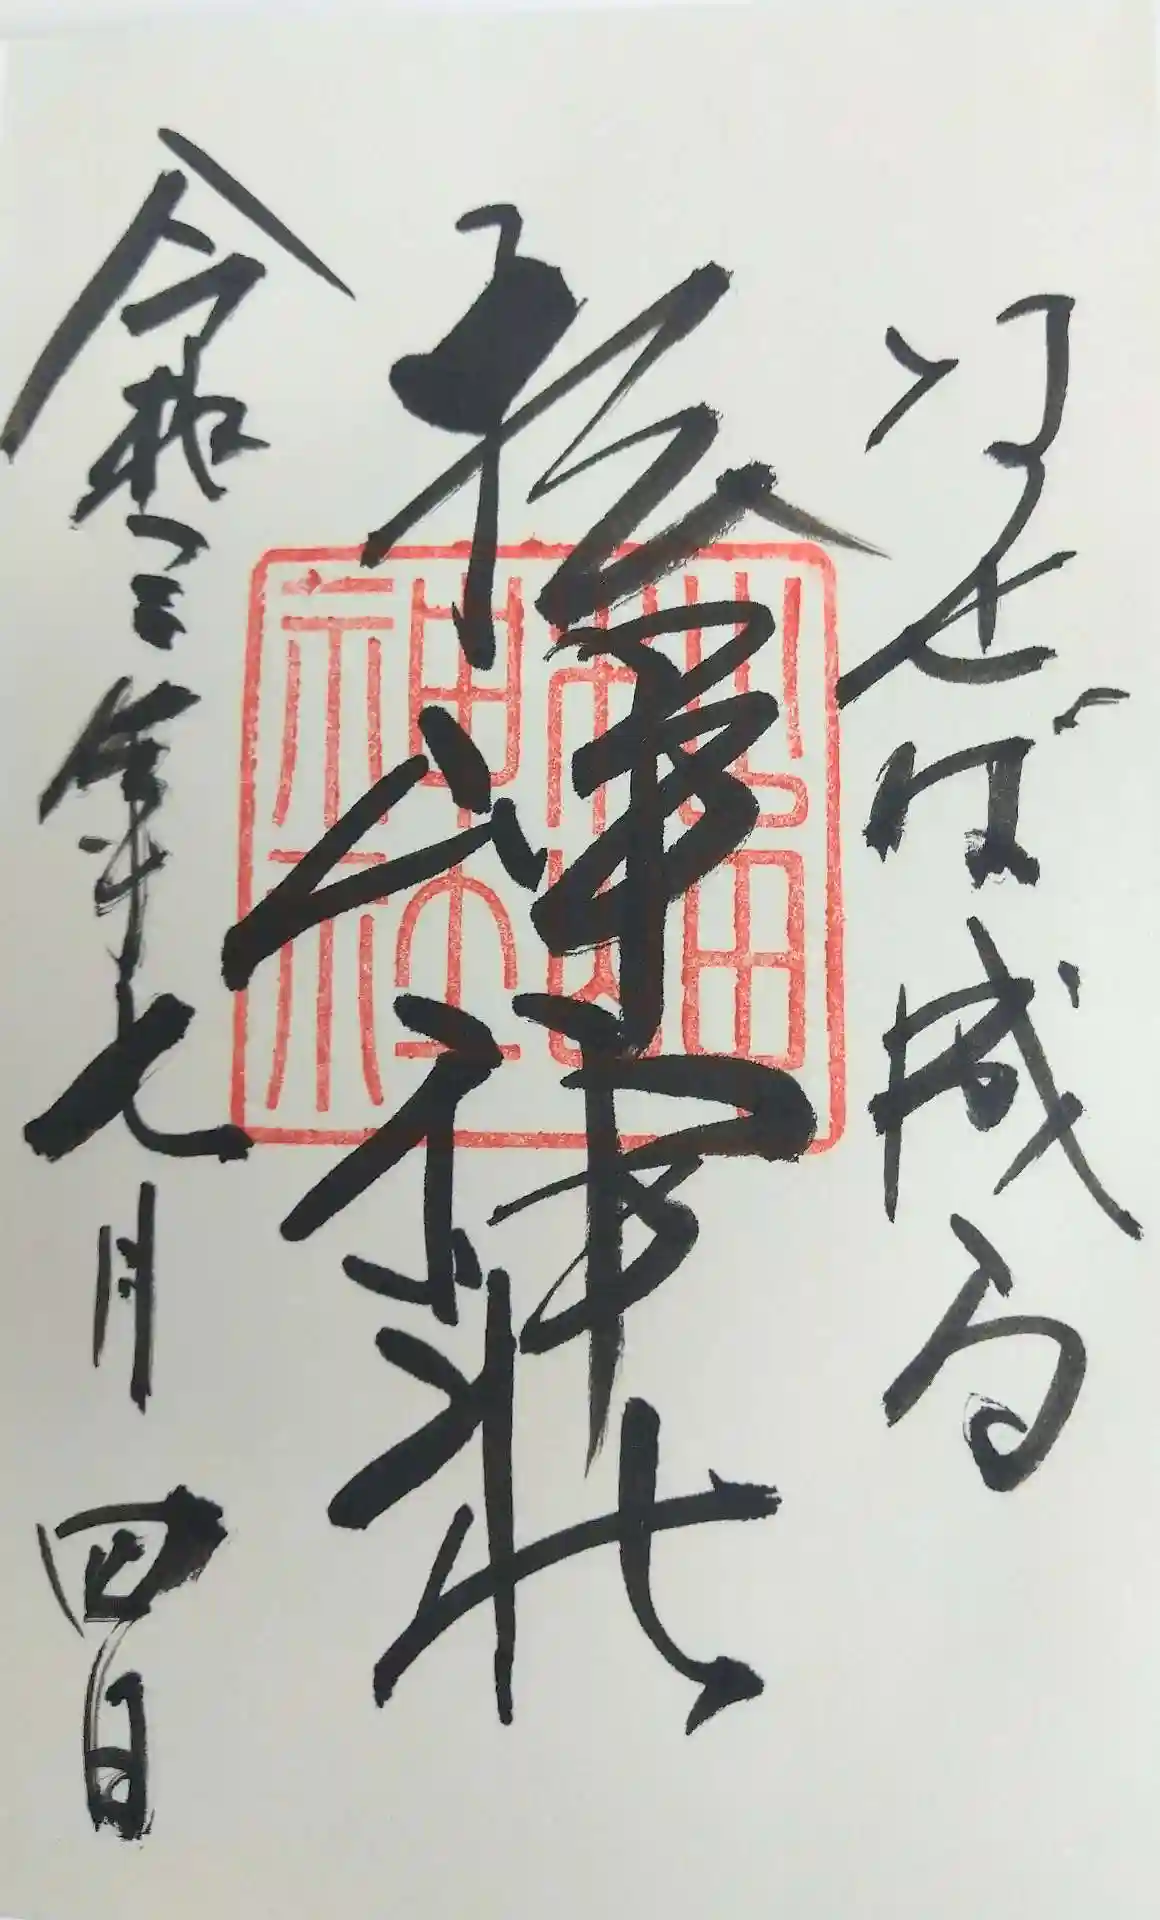 なせば成る
松岬神社
令和三年七月四日
松岬
神社